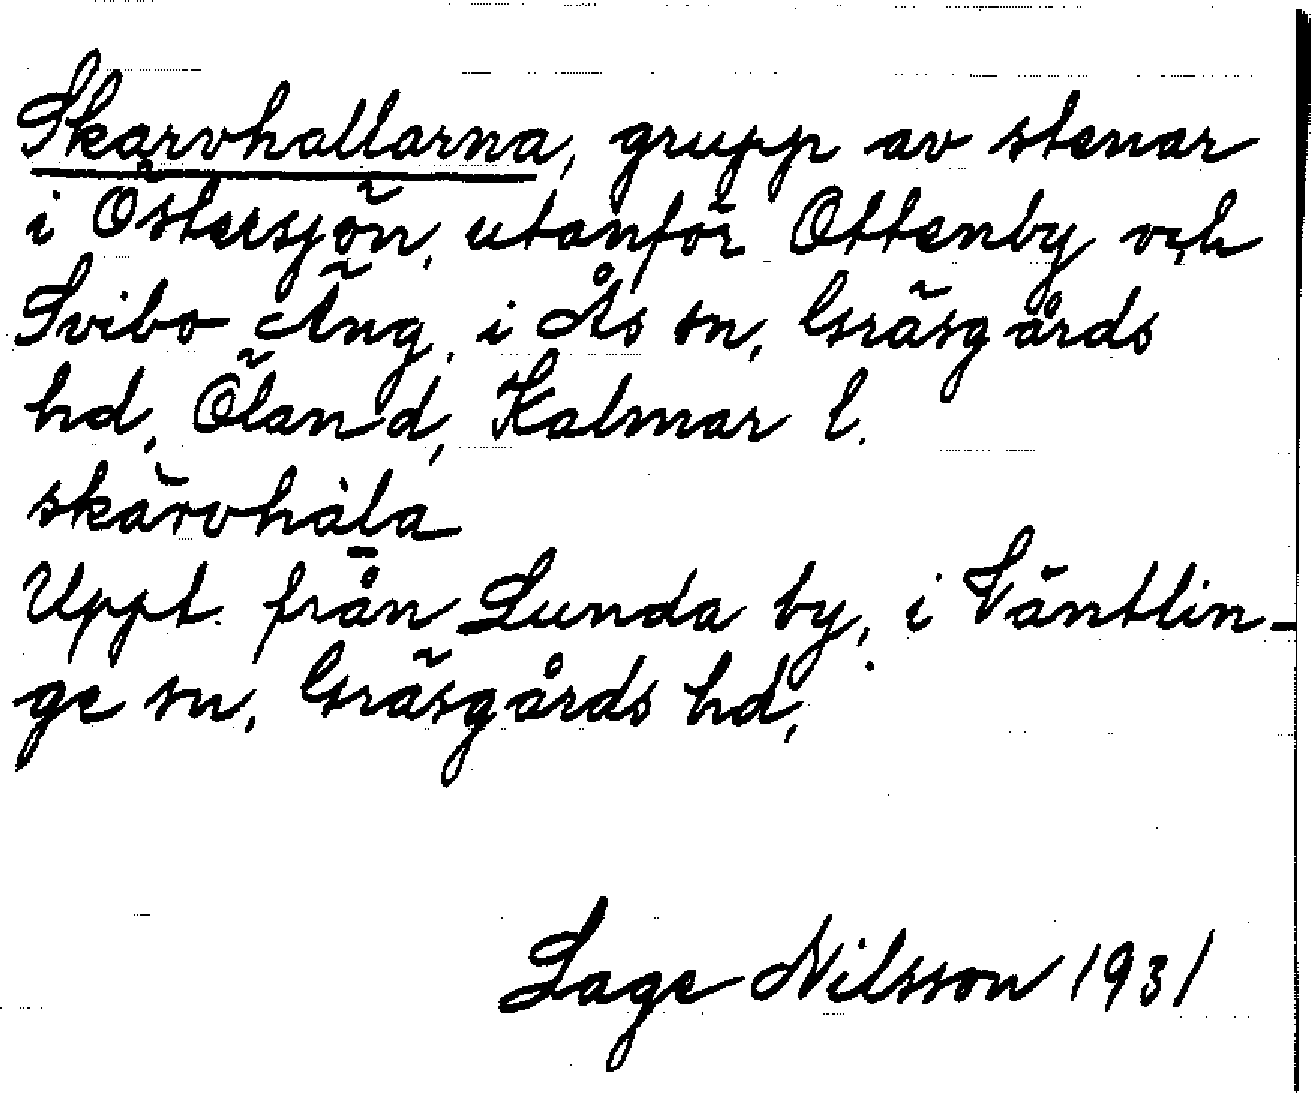 Skarvhallarna, grupp av stenar
i Östersjön, utanför Ottenby och
Svibo Äng, i Ås sn, Gräsgårds
hd, Öland, Kalmar l.
skàrvhàla
Uppt. från Lunda by, i Väntlin-
ge sn, Gräsgårds hd,
Lage Nilsson 1931